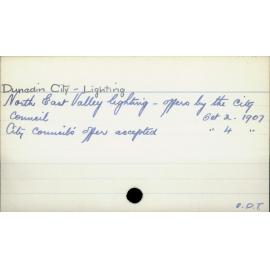 Dunedin City - Lighting
North East Valley lighting - offers by the City
Council Oct 2. 1907
City Council's offer accepted " 4 "
O.D.T